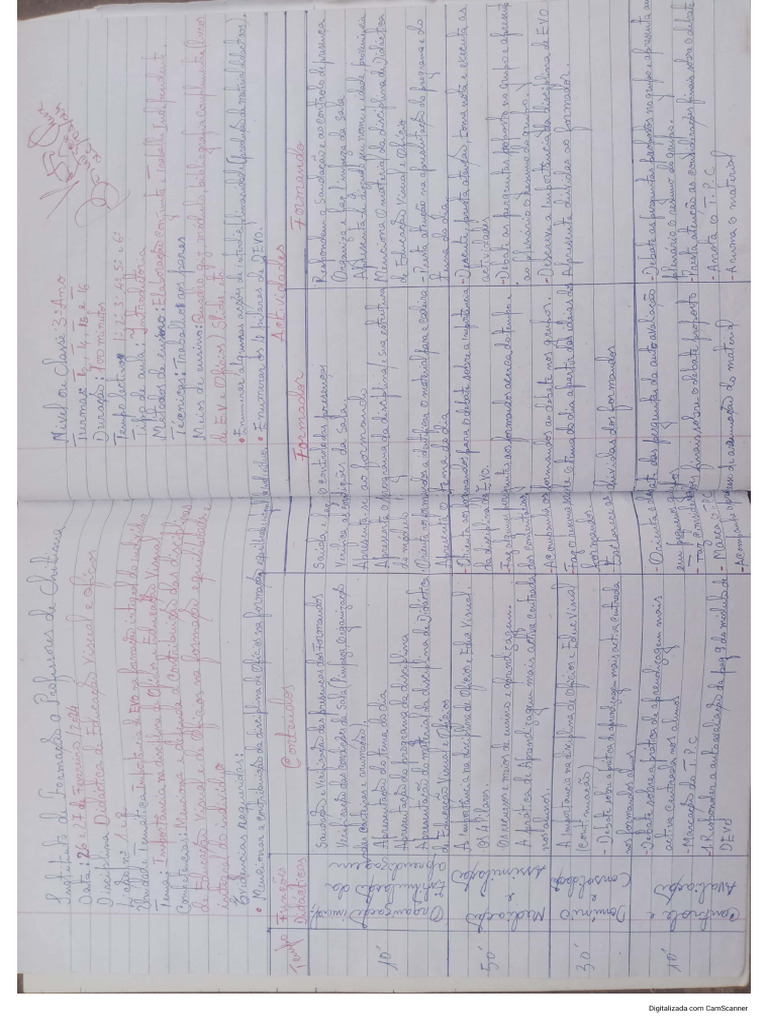 Instituto de Formação de Professores de Chibata
Data: 26 e 27 de Fevereiro/2024
Disciplina: Didáctica de Educação Visual e ofícios
Lição nº 1 e 2
Unidade Temática: Importância de EVO na formação integral do indivíduo
Tema: Importância na disciplina de Ofícios e Educação Visual
Competências: Menciona e defende a Contribuição das disciplinas
de Educação Visual e de Ofícios na formação equilibrada e
integral do indivíduo
Evidências requeridas:
• Mencionar a contribuição da disciplina de Ofícios na formação equilibrada
Nível ou Classe: 3º Ano
Turmas:
Duração: 100 minutos
Tempo lectivo: 1º; 2º; 3º; 4º; 5º e 6º
Tipo de aula: Introdutória
Métodos de ensino: Elaboração conjunta e Trabalho Independente.
Técnicas: Trabalhos aos pares
Meios de ensino: Quadro, giz, módulo, bibliografia complementar (livros
de EV e Ofícios) Slide etc
• Enumerar os 4 pilares de EVO.
Tempo
Funções Didácticos
Conteúdos
Actividades
Formador
Formando
10'
① Organização inicial,
Saudação e Verificação das presenças dos Formandos
Verificação das Condições da Sala (limpeza, Organização
das Carteiras e arrumação)
Apresentação do tema do dia
Apresentação do programa da disciplina
Apresentação do material da disciplina de Didáctica
de Educação Visual e Ofícios
Saúda, e faz o controlo das presenças
Verifica as condições da Sala.
Apresenta-se ao formando
Apresenta o programa da disciplina/sua estrutura
do módulo
Orienta os formandos a identificar o material para e sobre
Apresenta o tema do dia
Respondem a Saudação e ao controlo de presença
Organiza e faz limpeza da Sala
Apresenta-se dizendo seu nome, idade, proveniência
Menciona o material da disciplina de Didáctica
de Educação Visual e Ofício
- Presta atenção na apresentação do programa e do
tema do dia
50'
Mediação e Assimilação
A Importância na disciplina de Ofícios e Educ. Visual
Os 4 Pilares.
Os recursos e meios de ensino e aprendizagem.
A prática de Aprendizagem mais activa Centrada
no aluno.
- Orienta os formandos para o debate sobre a importância
da disciplina de EVO.
- Faz algumas perguntas aos formandos acerca do tempo e
- Docente presta atenção, toma nota e executa as
actividades.
- Debate as perguntas proposta no grupo e apresenta
ao plenário o resumo do grupo.
30'
Domínio e Consolidação
A Importância na disciplina de Ofícios e Educ. Visual
(Continuação)
- Debate sobre a prática de aprendizag. mais activa centrada
nos formandos alunos
Acompanha os formandos ao debate nos grupos.
- Faz o resumo sobre o tema do dia apartir das ideias dos
formandos
- Esclarece as dúvidas dos formandos
- Descreve a Importância da disciplina de EVO.
Apresenta dúvidas ao formador.
10'
Controle e Avaliação
- Debate sobre a prática de aprendizagem mais
activa Centrada nos alunos
- Marcação do T.P.C
- 1 Responder a autoavaliação da pag 9 do módulo de
DEVO
- Orienta o debate das perguntas da auto avaliação
em pequenos grupos
- Faz considerações finais sobre o debate proposto
- Marca o TPC
- Acompanha o processo de arrumação do material
- Debate as perguntas propostas no grupo e apresenta ao
plenário o resumo do grupo.
- Presta atenção as considerações finais sobre o debate
- Anota o T.P.C
- Arruma o material
Digitalizada com CamScanner